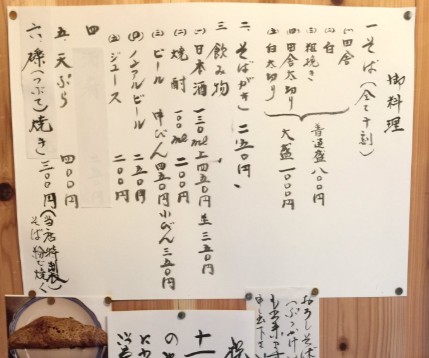 御料理
一 そば(全て十割)
(一) 田舎
(二) 白
(三) 粗挽き
(四) 田舎太切り
(五) 白太切り
普通盛 八〇〇円
大盛 一〇〇〇円
二 そばがき 二五〇円
三 飲み物
(一) 日本酒 一三〇ml 上 四五〇円 生 三五〇円
(二) 焼酎 一〇〇ml 二〇〇円
(三) ビール 中びん 四五〇円 小びん 三五〇円
(四) ノンアルビール 二五〇円
(五) ジュース 二〇〇円
四
五 天ぷら 四〇〇円
六 礫(つぶて)焼き 三〇〇円(当店特製
そば粉で焼く
おろしそば